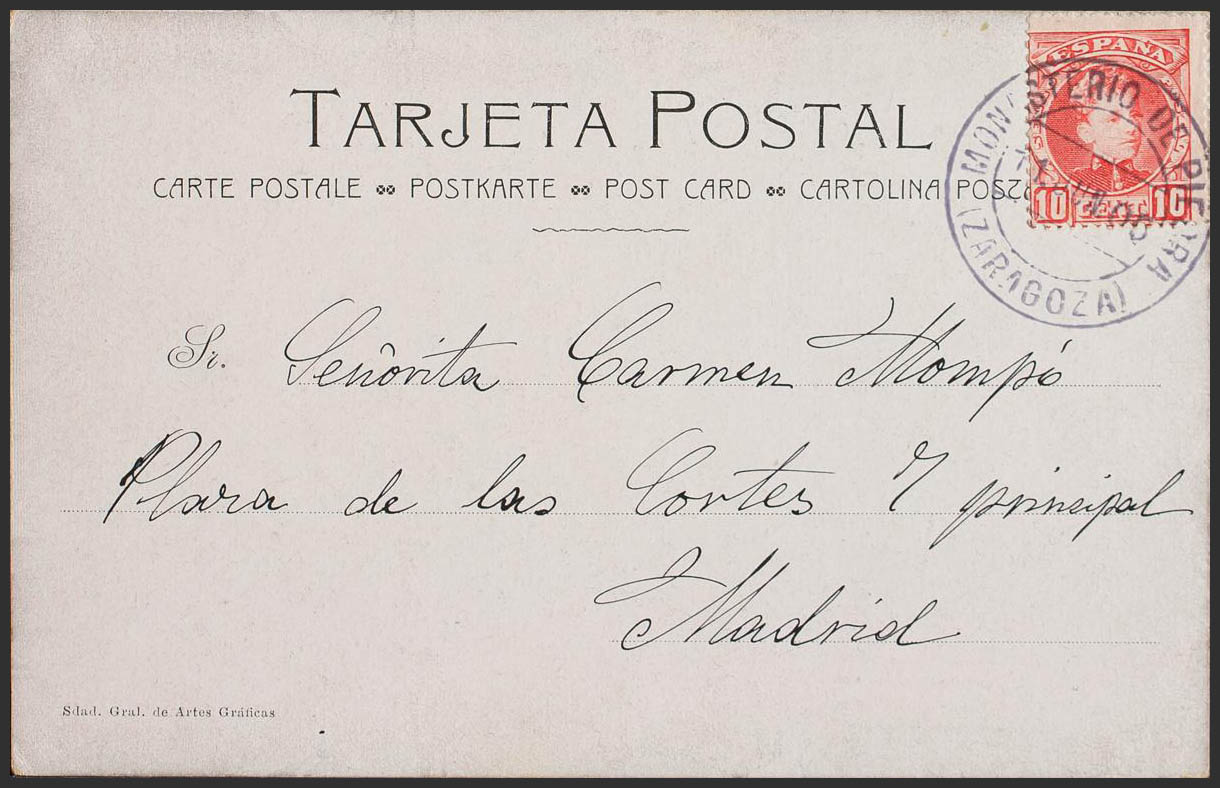 TARJETA POSTAL
CARTE POSTALE POSTKARTE POST CARD CARTOLINA
ESPAÑA
10 CENT 10
MONASTERIO DE PIEDRA
(ZARAGOZA)
Sr. Señorita Carmen Mompó
Plaza de las Cortes 7 principal
Madrid
Sdad. Gral. de Artes Gráficas